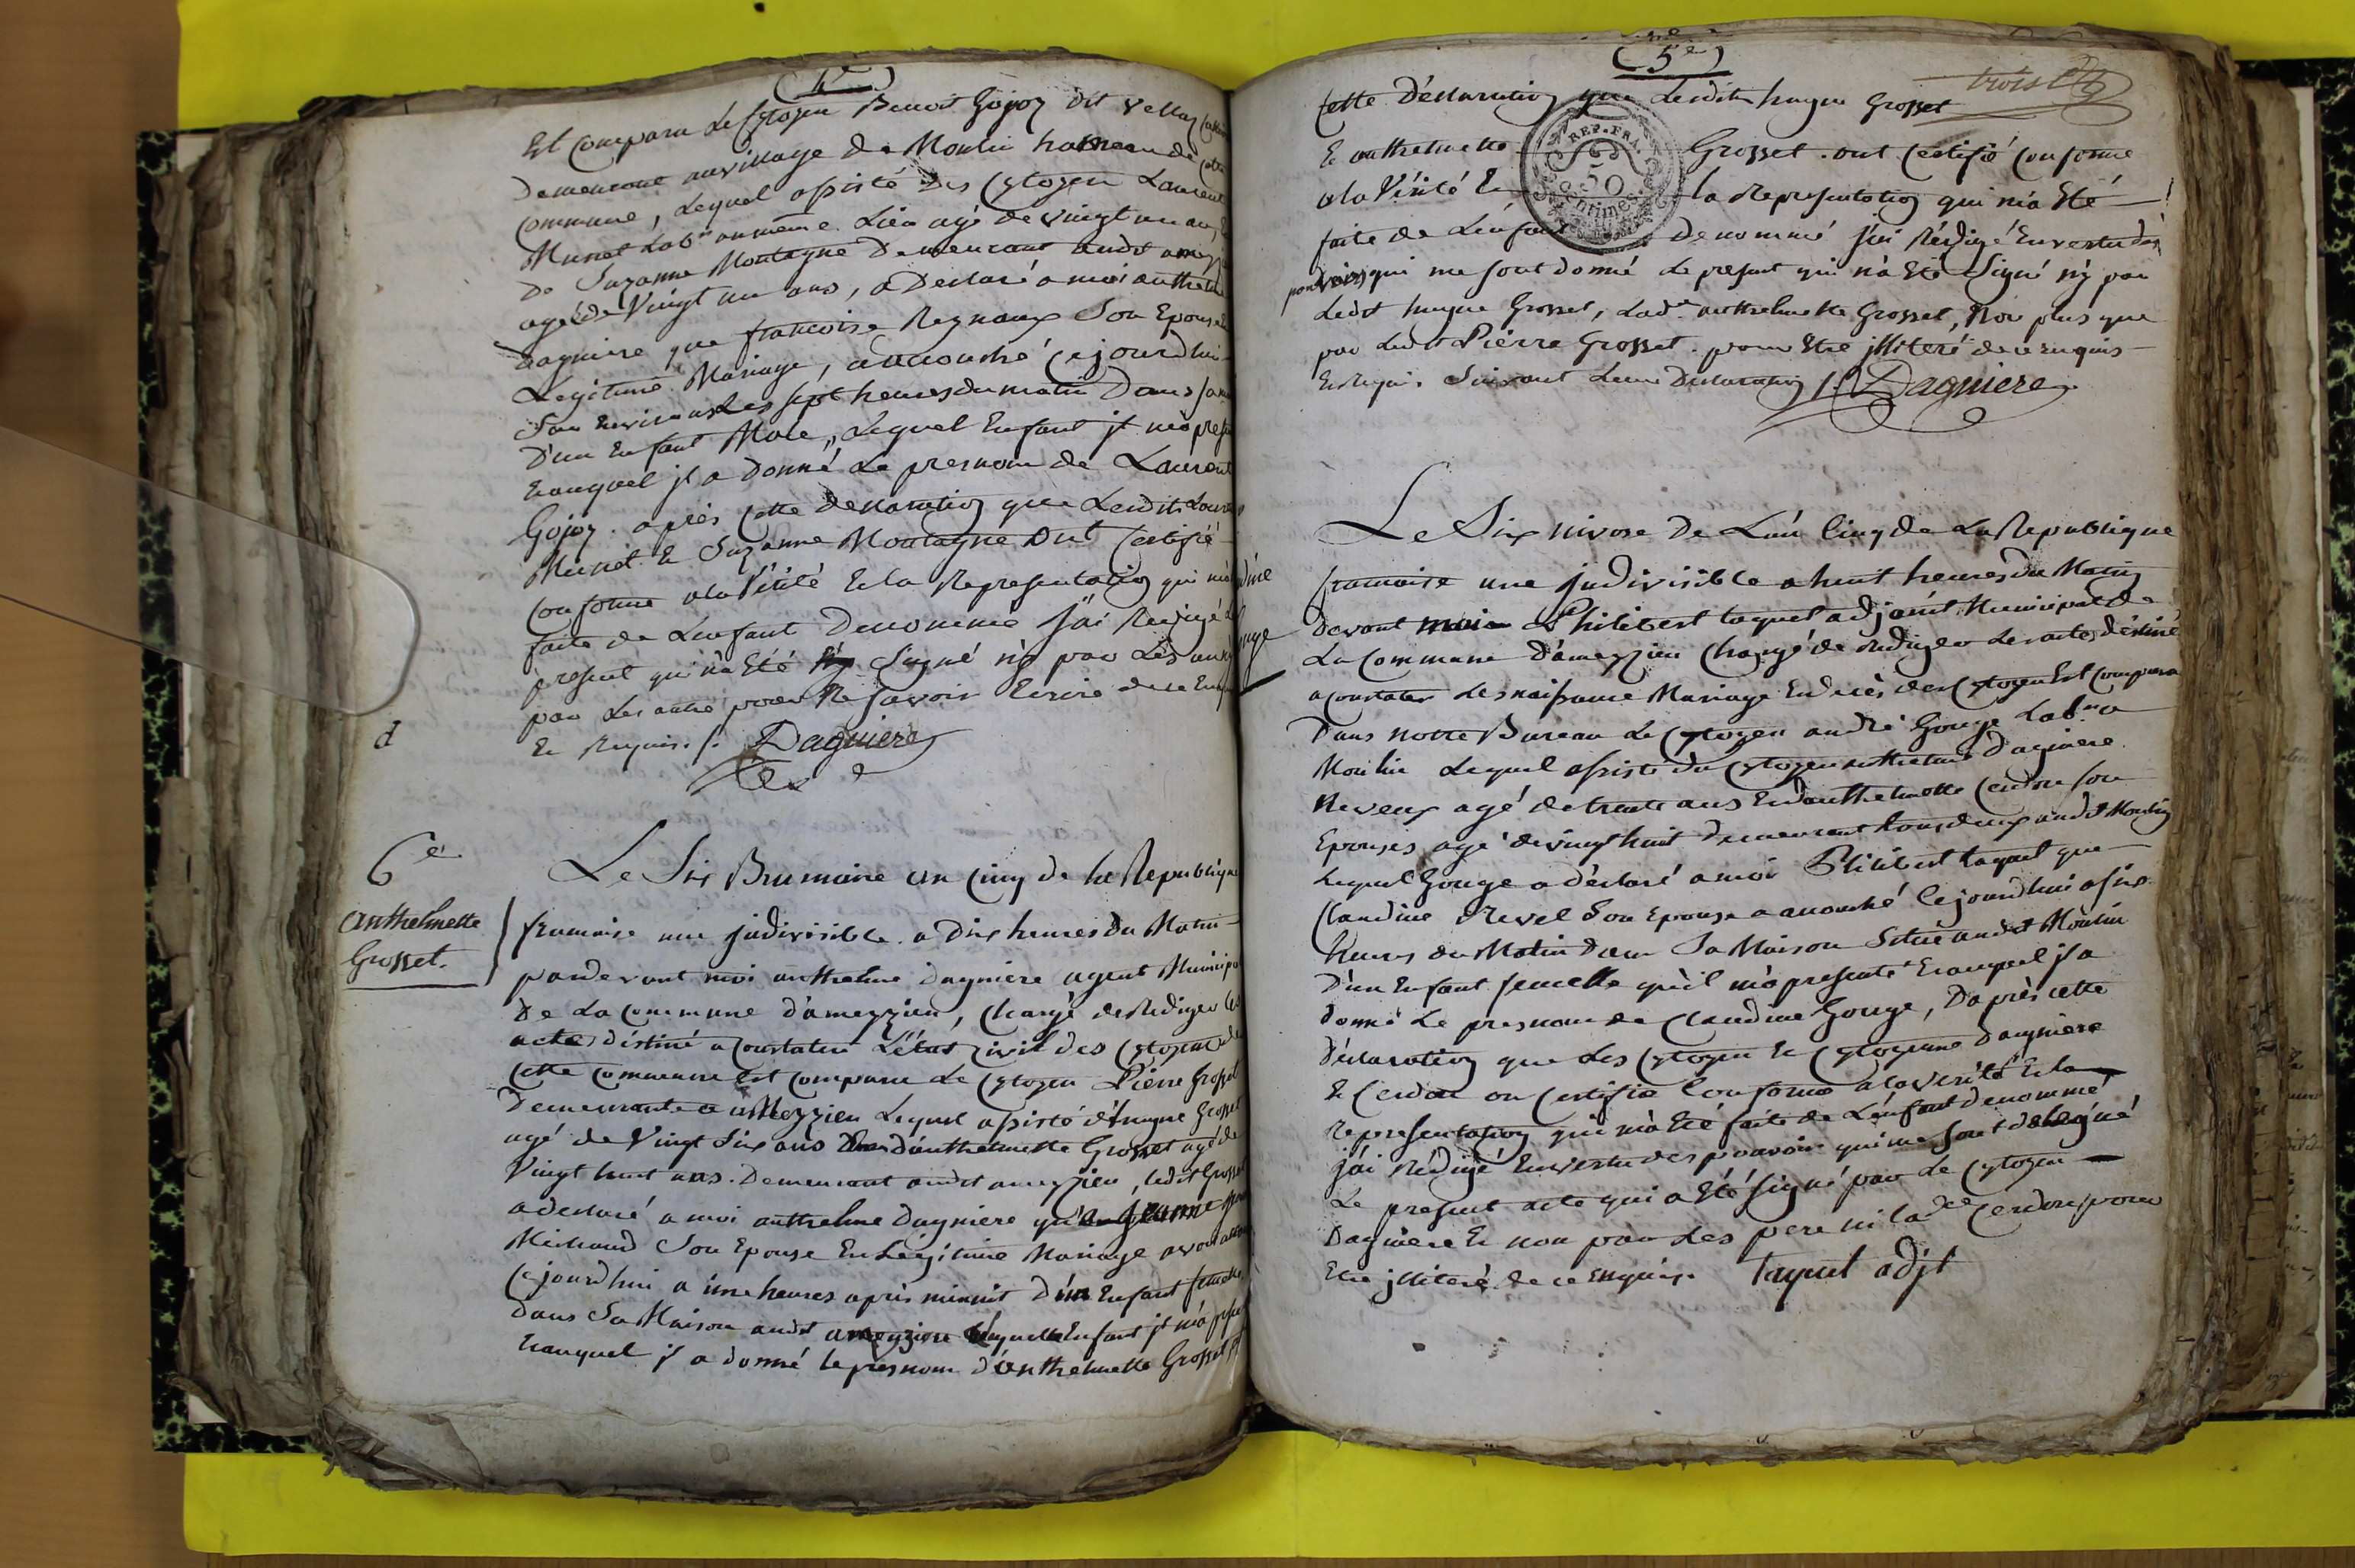 (4e)
Est comparu le Cytoyen Benoit Gojoz dit vellaz
demeurant au village de Moulin hameau de cette
Commune, Lequel assisté des Cytoyen Laurent
Musset Labr au même Lieu agé de vingt un ans,
De Suzanne Montagne Demeurant audit
agé de Vingt un ans, a Declaré a moi anthelme
Dagniere que francoise Reynaux Son Epouse
Legitime Mariage, a accouché Cejourdhui
Sur Environ Les sept heures du matin Dans sa
D'un Enfant Mâle, Lequel Enfant jl m'a
Eauquel jl a donné Le presnom de Laurent
Gojoz. apres Cette declaration que Lesdits Laurent
Musset Et Suzanne Montagne Ont Certifié
Conforme a la Vérité Et la Representation qui
faite de L'enfant Denommé j'ai Redigé
present qui n'a Eté Signé ny par Les
par Les autre pour Ne savoir Ecrire de ce
Et Requis. /. Dagniere
d
6e
anthelmette
Grosset.
Le Six Brumaire an Cinq de la Republique
francaise une jndivisible a Dix heures Du Matin
pardevant moi anthelme Dagniere agent Municipal
De La Commune D'ameyzieu, Chargé de Rediger les
actes déstiné a Constater L'état Civil des Cytoyens de
Cette Commune Est Comparu Le Cytoyen Piérre Grosset
Demeurant a ameyzieu Lequel assisté d'hugue Grosset
agé de Vingt Six ans d'anthelmette Grosset agé de
Vingt huit ans. Demeurant audit ameyzieu, ledit Grosset
a declaré a moi anthelme Dagniere que Jeanne
Michaud Son Epouse En Légitime Mariage avoit
Cejourdhui a une heures après minuit D'un Enfant femelle
dans Sa Maison audit ameyzieu Laquelle Enfant jl m'a
Eauquel jl a donné le presnom d'anthelmette Grosset
(5e)
trois
Cette Déclaration que Lesdits hugue Grosset
Et anthelmette Grosset. ont Certifié Conforme
a la Vérité Et la Representation qui m'a Eté
REP. FRA.
50
Centimes
faite de L'enfant Denommé j'ai Rédigé En vertu des
pouvoirs qui me sont donné Le present qui n'a Eté Signé ny par
Ledit hugue Grosset, Lade anthelmette Grosset, Non plus que
par Ledit Piérre Grosset. pour Etre jlliteré de ce enquis
Et Requis Suivant Leur Declaration /. Dagniere
Le Six nivose De L'an Cinq de La Republique
francaise une jndivisible a huit heures du Matin
Devant moi Philibert taquet adjoint Municipal de
La Commune D'ameyzieu Chargé de Rediger Les actes déstiné
a Constater Les naissance Mariage Et decès des Cytoyen Est Comparu
Dans notre Bureau Le Cytoyen andré Gouge Labr a
Moulin Lequel assisté du Cytoyen anthelme Dagniere
Neveux agé de trente ans Et d'anthelmette Cerdon son
Epouses agé de vingt huit Demeurant tous deux audit Moulin
Lequel Gouge a déclaré a moi Philibert taquet que
Claudine Revel Son Epouse a accouché Cejourdhui a six
heures du Matin Dans Sa Maison Située audit Moulin
D'un Enfant femelle qu'il m'a presenté Eauquel jl a
donné Le presnom de Claudine Gouge, D'après cette
Déclaration que Les Cytoyen Et Cytoyenne Dagniere
Et Cerdon on Certifié Conforme a la Vérité Et la
representation qui m'a Eté faite de L'enfant denommé
j'ai Rédigé En vertu des pouvoir qui me sont delegué
Le present acte qui a Eté signé par Le Cytoyen
Dagniere Et non par Les pere ni lade Cerdon pour
Etre jlliteré de ce Enquis. Taquet adjt